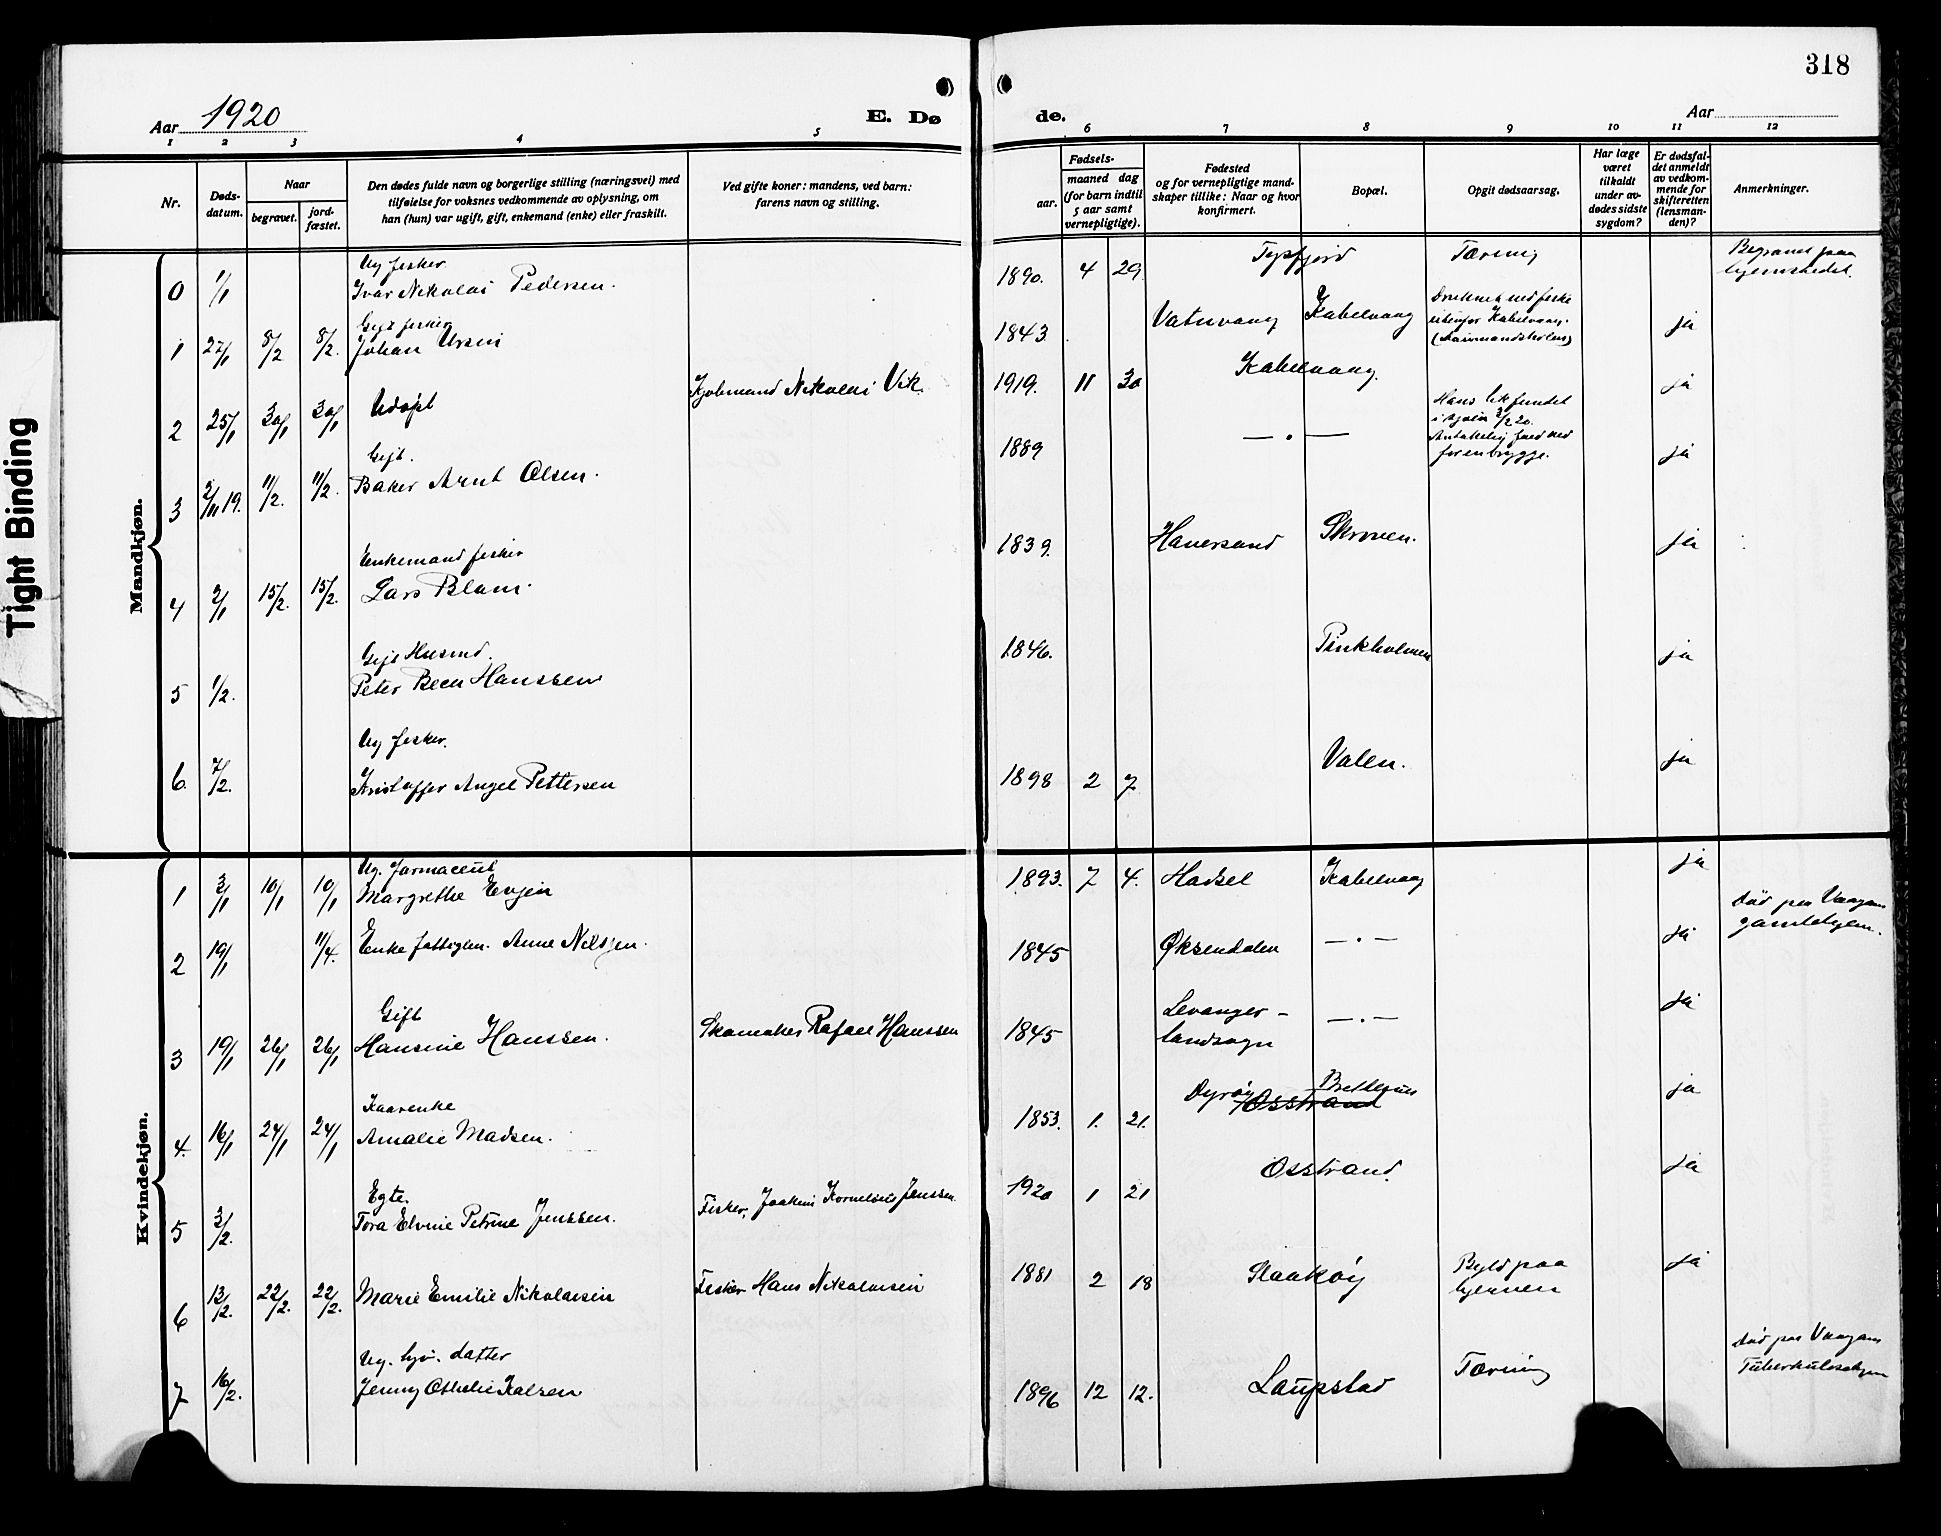 318
Aar 1920
E. Dø
de.
Aar
1 2 3 4 5 6 7 8 9 10 11 12
Nr.
Døds-
datum.
Naar
begravet.
jord-
fæstet.
Den dødes fulde navn og borgerlige stilling (næringsvei) med
tilføielse for voksnes vedkommende av oplysning, om
han (hun) var ugift, gift, enkemand (enke) eller fraskilt.
Ved gifte koner: mandens, ved barn:
farens navn og stilling.
Fødsels-
aar.
maaned dag
(for barn indtil
5 aar samt
vernepligtige).
Fødested
og for vernepligtige mand-
skaper tillike: Naar og hvor
konfirmert.
Bopæl.
Opgit dødsaarsag.
Har læge
været
tilkaldt
under av-
dødes sidste
sygdom?
Er dødsfal-
det anmeldt
av vedkom-
mende for
skifteretten
(lensman-
den)?
Anmerkninger.
Tight Binding
Mandkjøn.
Ug fisker
0 1/1 Ivar Nikolai Pedersen. 1890. 4 29. Tæring Begravet paa
hjemstedet.
Gift fisker
1 27/1 8/2 8/2. Johan Ursin 1843. Kabelvaag Druknet ved fiske
utenfor Kabelvaag. ja
2 25/1 30/1 30/1 Udøpt Kjøbmand Nikolai Vik. 1919. 11 30 Kabelvaag. ja
Gift.
3 2/11 19. 11/2. 11/2. Baker Arnt Olsen. 1889 — " — Hans lik fundet
i sjøen 3/2 20.
Antakelig faldt ned
for en brygge. ja
Enkemand fisker
4 2/1 15/2. 15/2. Lars Blam. 1839. Haversand Skroven. ja
Gift Husmd.
5 1/2. Peter Been Hanssen 1846. Finkholmen ja
Ug fisker.
6. 7/2. Kristoffer Angel Pettersen 1898 2 7. Valen. ja
Kvindekjøn.
Ug. farmaceut
1 3/1 10/1 10/1 Margrethe Evjen 1893. 7 4. Hadsel Kabelvaag ja
2 19/1 11/4. Enke fattiglem. Anne Nilssen. 1845 Øksendalen — " — ja død paa Vaagan
gamlehjem.
Gift
3 19/1 26/1 26/1 Hansine Hanssen. Skomaker Rafael Hanssen 1845 Levanger-
landsogn — " — ja
Kaarenke
4. 16/1 24/1 24/1 Amalie Madsen. 1853. 1. 21. Dyrøy Brettesnes
Osstrand ja
Egte.
5 3/2. Tora Elvine Petrine Jenssen. Fisker, Joakim Kornelius Jenssen. 1920 1 21 Osstrand. ja
6 13/2. 22/2. 22/2. Marie Emilie Nikolaisen Fisker Hans Nikolaisen 1881 2 18 Skaakøy Byld paa
hjernen ja
Ug. hjv. datter
7 16/2. Jenny Othelie Kalsen 1896 12 12. Laupstad Tæring død paa Vaagan
Tuberkulosehjem